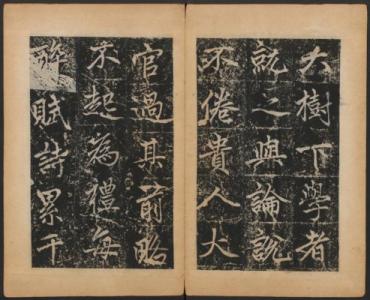 大樹下學者
就之與論說
不倦貴人大
官過其前略
不起為禮每
醉賦詩累千